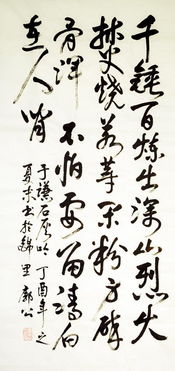 千锤百炼出深山烈火
焚烧若等闲粉身碎
骨浑不怕要留清白
在人间
于谦石灰吟 丁酉年之
夏末书於锦里